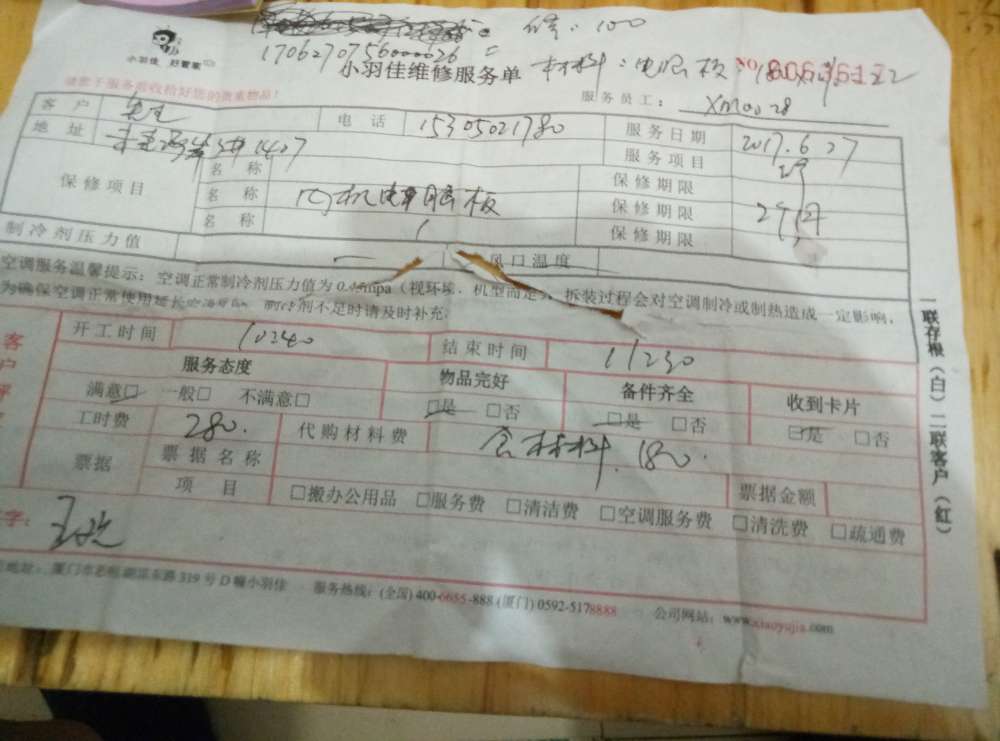 修：100
170627075600026 =
小羽佳 好管家
小羽佳维修服务单 材料：电脑板：180
NO
请您于服务前收拾好您的贵重物品！ 服务员工： XM0028
客户 电话 15305021780 服务日期 2017.6.27
地址 1407 服务项目
保修项目 名称 保修期限
名称 内机电脑板 保修期限
名称 保修期限
制冷剂压力值 风口温度
空调服务温馨提示：空调正常制冷剂压力值为 mpa（视环境、机型而定），拆装过程会对空调制冷或制热造成一定影响，
为确保空调正常使用延长 制冷剂不足时请及时补充.
开工时间 10:40 结束时间 11:30
服务态度 物品完好 备件齐全 收到卡片
满意□ 一般□ 不满意□ □是 □否 □是 □否 □是 □否
工时费 280. 代购材料费 含材料.180.
票据 票据名称 票据金额
项目 □搬办公用品 □服务费 □清洁费 □空调服务费 □清洗费 □疏通费
字：
地址：厦门市 湖滨东路319号D幢小羽佳 服务热线：(全国) 400-6655-888 (厦门) 0592-5178888 公司网站：www.xiaoyujia.com
一联存根（白）二联客户（红）